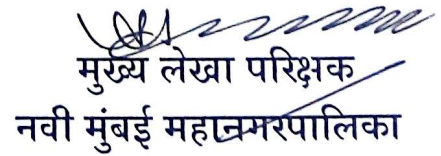 मुख्य लेखा परिक्षक
नवी मुंबई महानगरपालिका